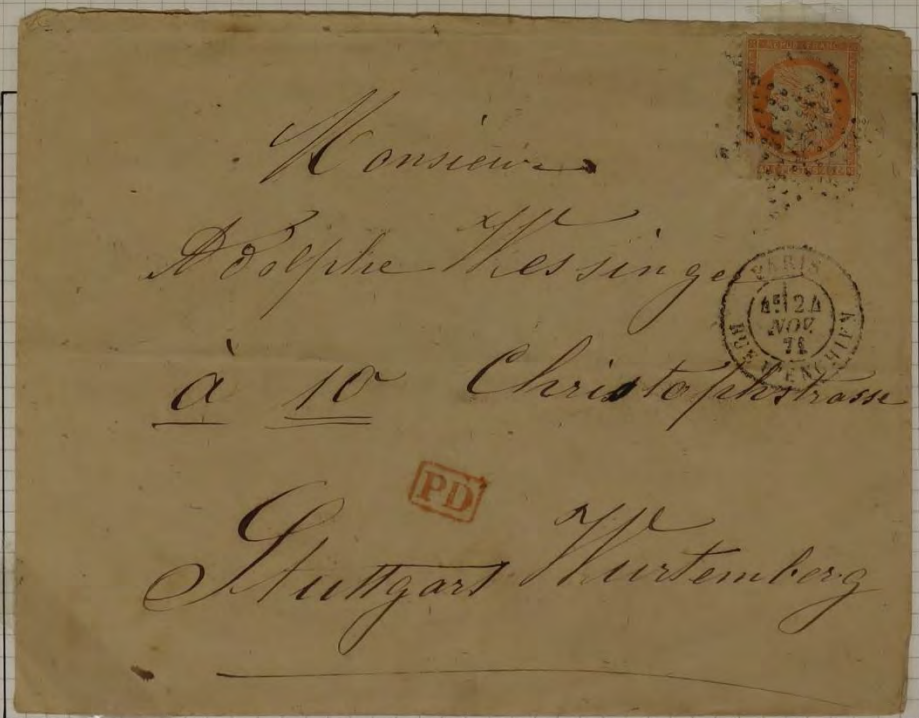 REPUB FRANC
Monsieur
Adolphe Wessinger
PARIS
4E 24
NOV.
71
RUE D'ENGHIEN
à 10 Christophstrasse
PD
Stuttgart Wurtemberg